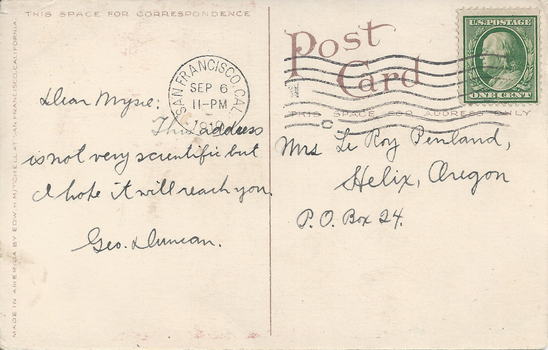 THIS SPACE FOR CORRESPONDENCE
Post Card
U.S. POSTAGE
ONE CENT
SAN FRANCISCO, CAL.
SEP 6
11-PM
THIS SPACE FOR ADDRESS ONLY
C
Dear Mysie:
This address
is not very scientific but
I hope it will reach you.
Geo. Duncan.
Mrs Le Roy Penland,
Helix, Oregon
P.O. Box 24.
MADE IN AMERICA BY EDW. H. MITCHELL AT SAN FRANCISCO, CALIFORNIA.